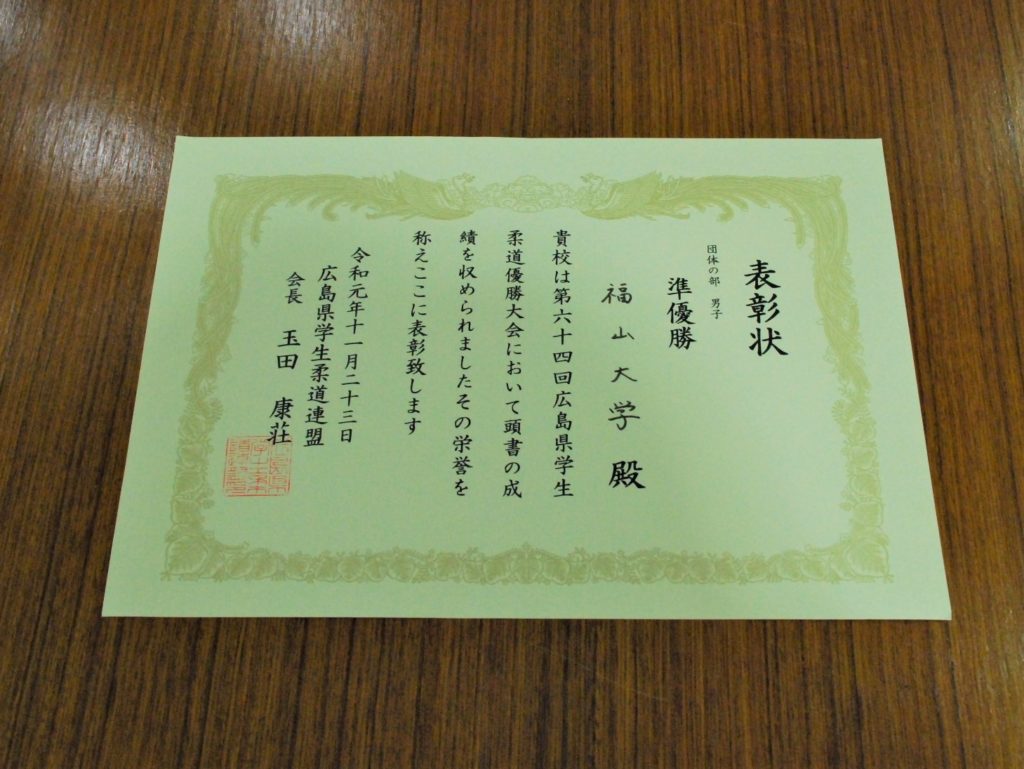 表彰状
団体の部　男子
準優勝
福山大学　殿
貴校は第六十四回広島県学生
柔道優勝大会において頭書の成
績を収められましたその栄誉を
称えここに表彰致します
令和元年十一月二十三日
広島県学生柔道連盟
会長　玉田　康荘